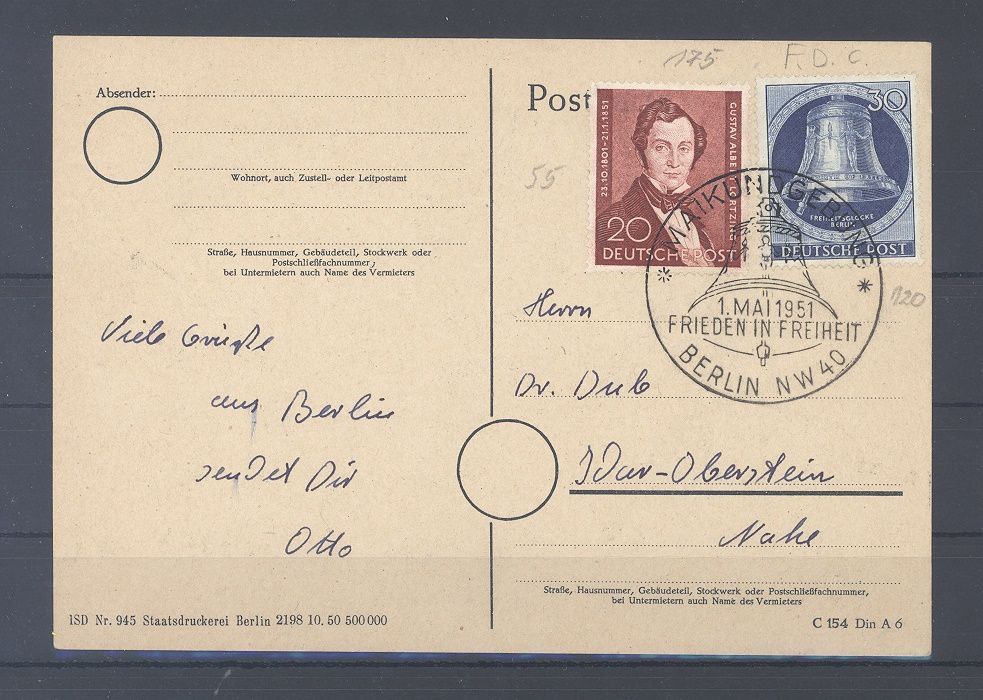 175 F. D. C.
Absender:
Wohnort, auch Zustell- oder Leitpostamt
Straße, Hausnummer, Gebäudeteil, Stockwerk oder
Postschließfachnummer,
bei Untermietern auch Name des Vermieters
Viele Grüße
aus Berlin
sendet Dir
Otto
1SD Nr. 945 Staatsdruckerei Berlin 2198 10. 50 500 000
Post
55
23.10.1801-21.1.1851
GUSTAV ALBERT LORTZING
20
DEUTSCHE POST
30
FREIHEITSGLOCKE
BERLIN
DEUTSCHE POST
* MAIKUNDGEBUNG *
1. MAI 1951
FRIEDEN IN FREIHEIT
BERLIN NW 40
120
Herrn
Dr. Dub
Idar-Oberstein
Nahe
Straße, Hausnummer, Gebäudeteil, Stockwerk oder Postschließfachnummer,
bei Untermietern auch Name des Vermieters
C 154 Din A 6